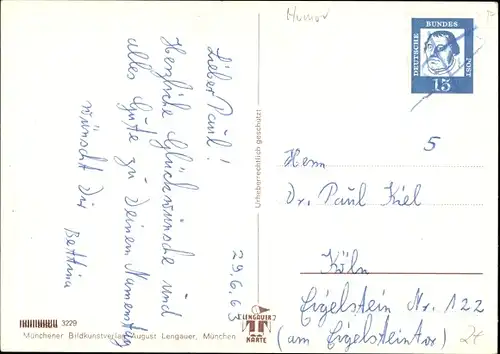 Humor
DEUTSCHE
BUNDES
POST
15
Lieber Paul!
Herzliche Glückwünsche und
alles Gute zu Deinem Namenstag
wünscht Dir Bettina
29.6.63
Urheberrechtlich geschützt
5
Herrn
Dr. Paul Kiel
Köln
Eigelstein Nr. 122
(am Eigelsteintor)
3229
Münchener Bildkunstverlag August Lengauer, München
LENGAUER
KARTE